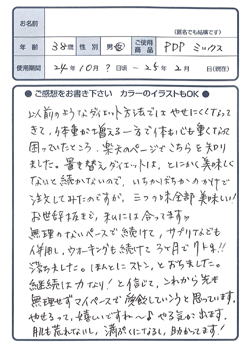 お名前
(匿名でも結構です)
年齢 38歳 性別 男・女 ご使用商品 PDP ミックス
使用期間 24年10月?日頃～25年2月 日(現在)
●ご感想をお書き下さい カラーのイラストもOK●
以前のようなダイエット方法ではやせにくくなって
きて、体重が増える一方で体も心も重くなり
困っていたところ、楽天のページでこちらを知り
ました。置き替えダイエットは、とにかく美味しく
ないと続かないので、いちかばちかのかけで
注文してみたのですが、三つの味全部美味しい!
お世辞抜きで、私には合ってます。
無理のないペースで続けて、サプリなども
併用し、ウォーキングも続けて3ヶ月で
落ちました。ほんとにストン、とおちました。
継続は力なり!と信じて、これから先も
無理せずマイペースで愛飲していこうと思っています。
やせるって、嬉しいですネ～♪やる気が出ます。
肌も荒れないし、満ぷくになるし、助かってます!